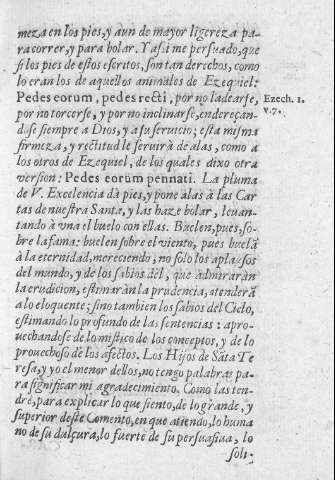 meza en los pies, y aun de mayor ligereza pa-
ra correr, y para bolar. Y assi me persuado, que
si los pies de estos escritos, son tan derechos, como
lo eran los de aquellos animales de Ezequiel:
Pedes eorum, pedes recti, por no ladearse,
Ezech. 1.
v. 7.
por no torcerse, y por no inclinarse, endereçan-
dose siempre a Dios, y a su seruicio; esta misma
firmeza, y rectitud le seruirà de alas, como a
los otros de Ezequiel, de los quales dixo otra
version: Pedes eorum pennati. La pluma
de V. Excelencia dà pies, y pone alas à las Car
tas de nuestra Santa, y las haze bolar, leuan-
tando à vna el buelo con ellas. Buelen, pues, so-
bre la fama: buelen sobre el viento, pues buelã
à la eternidad, mereciendo, no solo los aplausos
del mundo, y de los sabios dèl, que admiraràn
la erudicion, estimaràn la prudencia, atenderã
a lo eloquente; sino tambien los sabios del Cielo,
estimando lo profundo de las sentencias: apro-
uechandose de lo mistico de los conceptos, y de lo
prouechoso de los afectos. Los Hijos de Sãta Te
resa, y yo el menor dellos, no tengo palabras pa-
ra significar mi agradecimiento. Como las ten-
drè, para explicar lo que siento, de lo grãde, y
superior deste Comento, en que atiendo, lo huma
no de su dulçura, lo fuerte de su persuasiua, lo
soli-